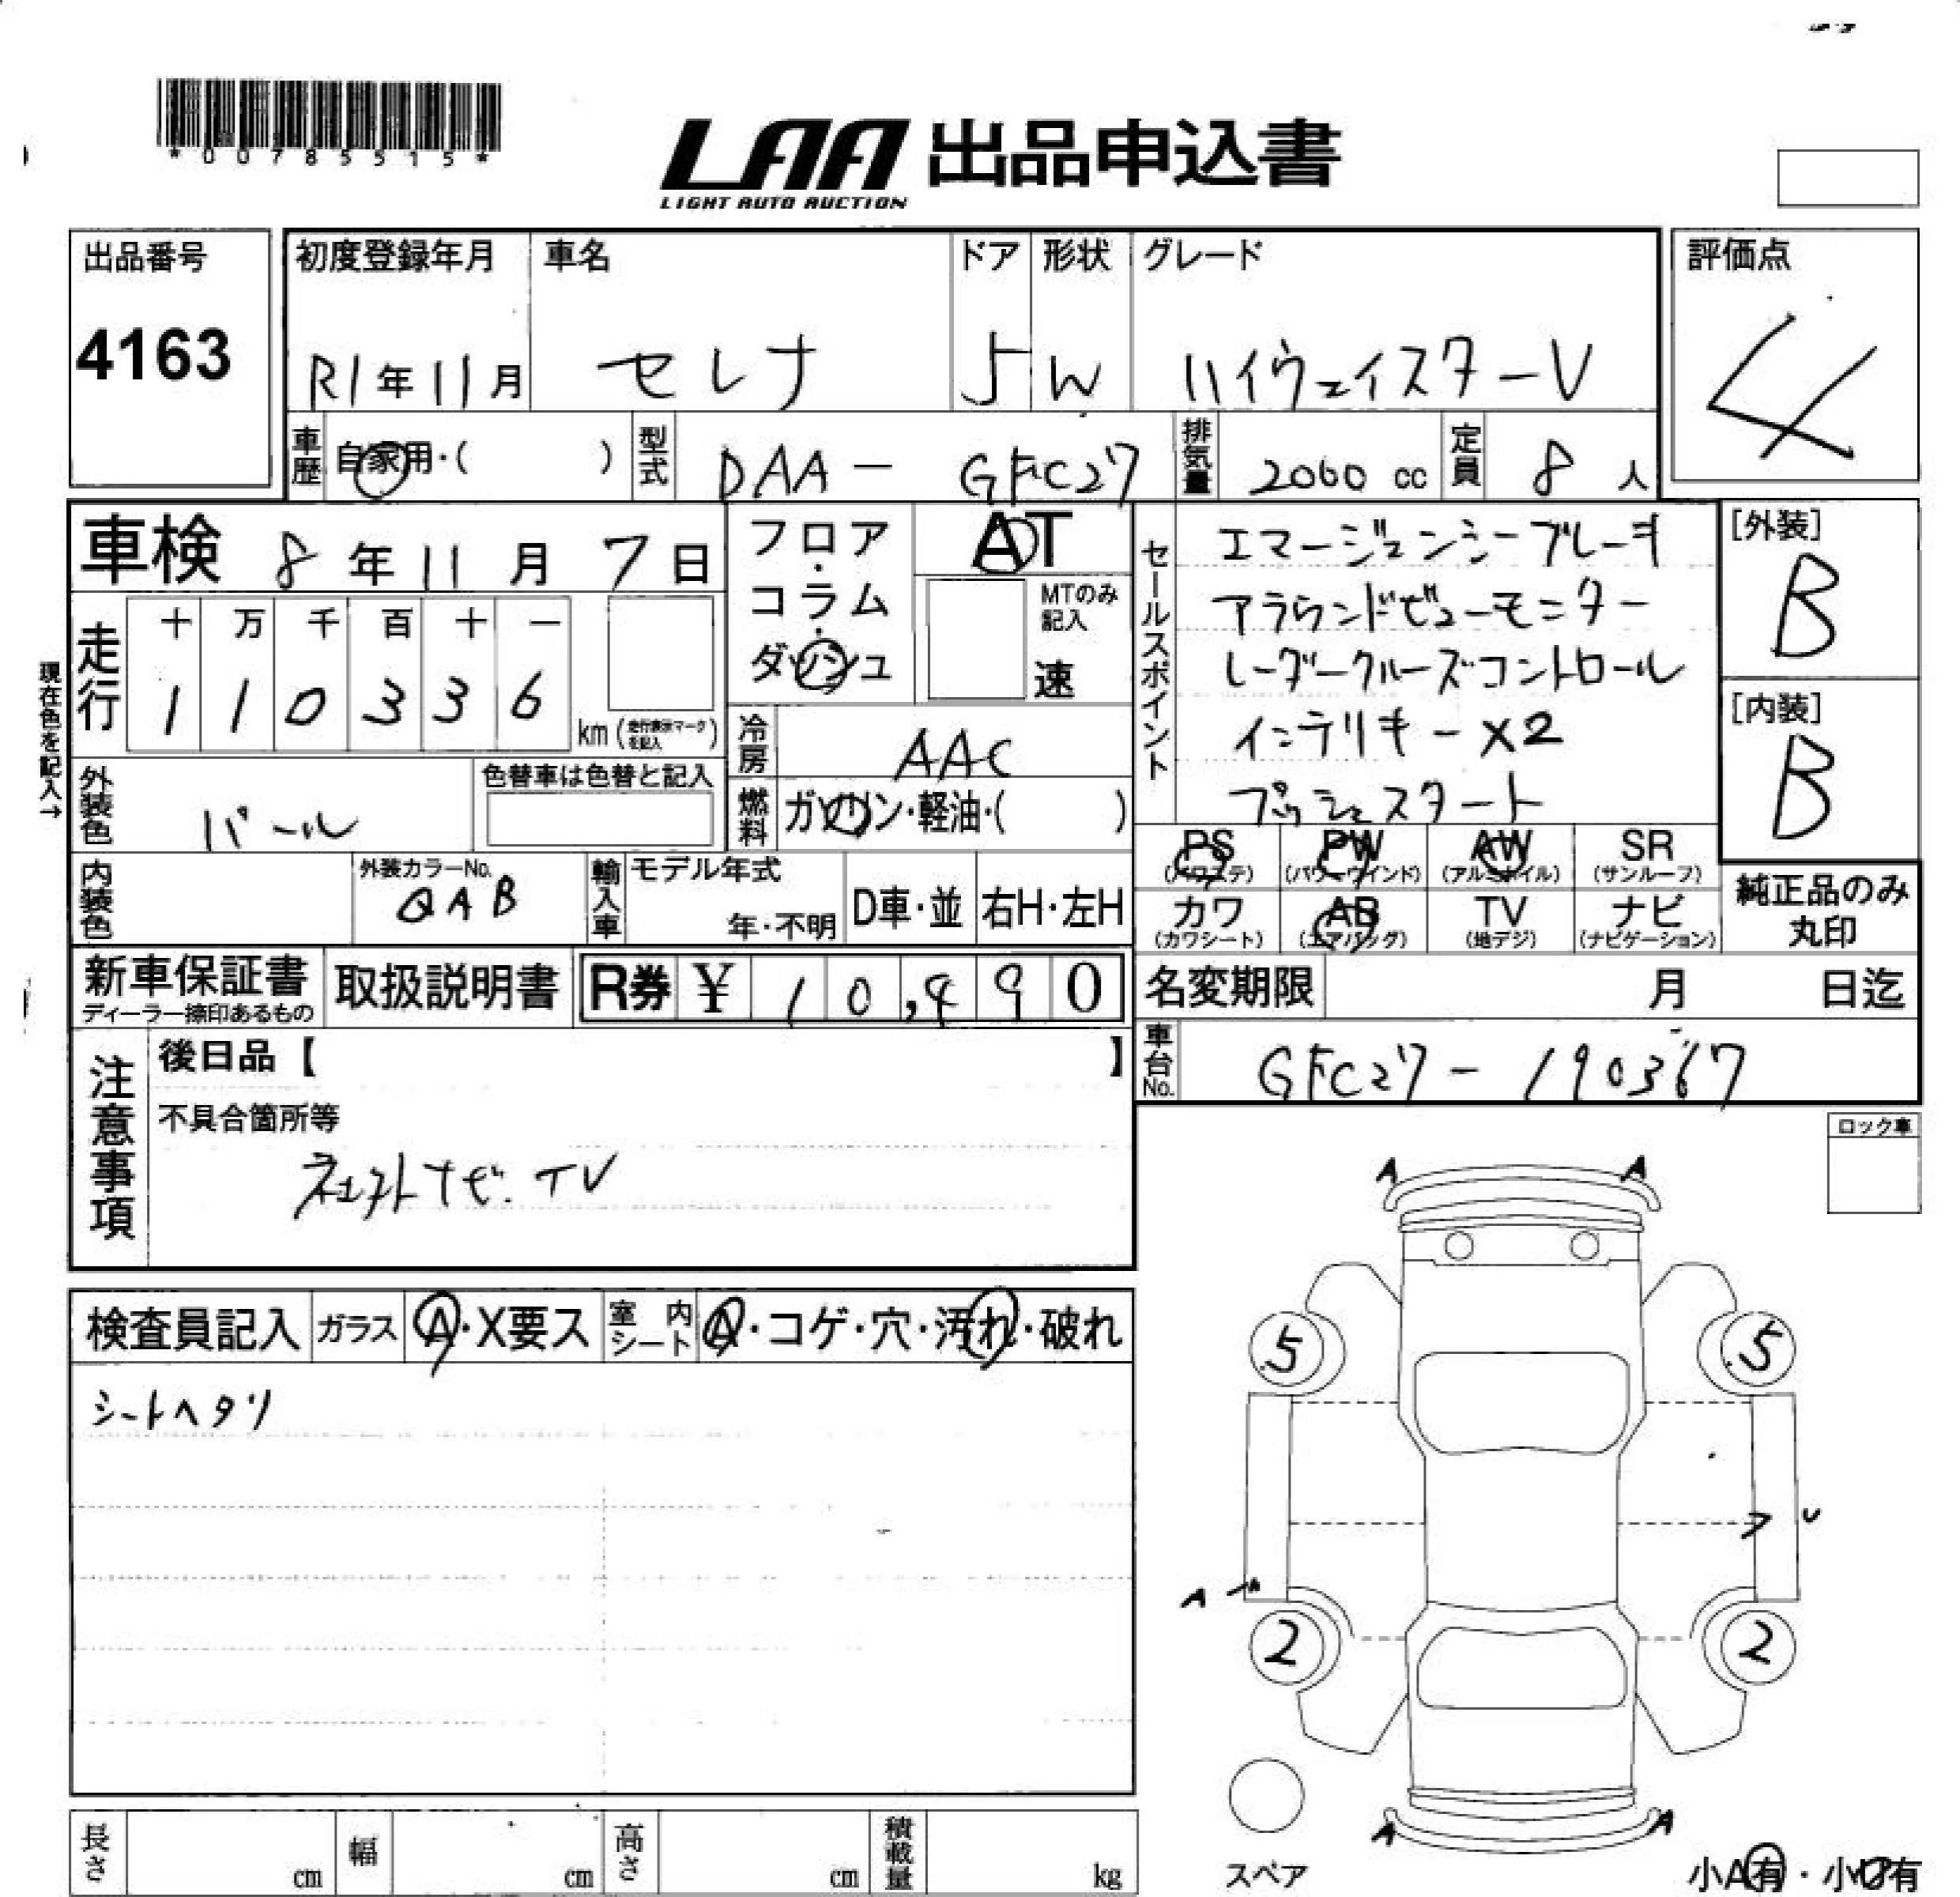 *00785515*
LAA 出品申込書
LIGHT AUTO AUCTION
出品番号
4163
初度登録年月
R1年11月
車名
セレナ
ドア
5
形状
W
グレード
ハイウェイスターV
評価点
4
車歴 自家用・( )
型式 DAA - GFC27
排気量 2000 cc
定員 8 人
車検 8年11月7日
フロア・コラム・ダッシュ
AT
MTのみ記入
速
走行
十 万 千 百 十 一
1 1 0 3 3 6
km(走行表示マークを記入)
現在色を記入→
冷房 AAC
外装色 パール
色替車は色替と記入
燃料 ガソリン・軽油・( )
内装色
外装カラーNo.
QAB
輸入車
モデル年式
年・不明
D車・並
右H・左H
セールスポイント
エマージェンシーブレーキ
アラウンドビューモニター
レーダークルーズコントロール
インテリキーX2
プッシュスタート
[外装]
B
[内装]
B
PS (パワステ)
PW (パワーウインド)
AW (アルミホイル)
SR (サンルーフ)
カワ (カワシート)
AB (エアバッグ)
TV (地デジ)
ナビ (ナビゲーション)
純正品のみ丸印
新車保証書
ディーラー捺印あるもの
取扱説明書
R券 ¥ 10,490
名変期限 月 日迄
車台No. GFC27-190367
注意事項
後日品【 】
不具合箇所等
社外ナビ.TV
ロック車
検査員記入
ガラス A・X要ス
室内シート A・コゲ・穴・汚れ・破れ
シートヘタリ
A A
5 5
U
A
2 2
A A
スペア
小A有・小U有
長さ cm
幅 cm
高さ cm
積載量 kg